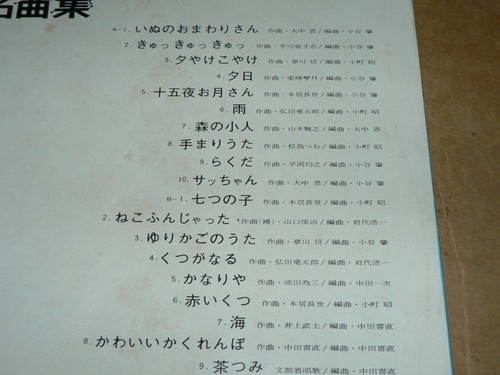 名曲集
A-1. いぬのおまわりさん 作曲・大中 恩/編曲・小谷 肇
2. きゅっきゅっきゅっ 作曲・芥川也寸志/編曲・小谷 肇
3. 夕やけこやけ 作曲・草川 信/編曲・小町 昭
4. 夕日 作曲・室崎琴月/編曲・小谷 肇
5. 十五夜お月さん 作曲・本居長世/編曲・小谷 肇
6. 雨 作曲・弘田竜太郎/編曲・小町 昭
7. 森の小人 作曲・山本雅之/編曲・大中 恩
8. 手まりうた 作曲・松島つね/編曲・小町 昭
9. らくだ 作曲・平岡均之/編曲・小谷 肇
10. サッちゃん 作曲・大中 恩/編曲・小谷 肇
B-1. 七つの子 作曲・本居長世/編曲・小町 昭
2. ねこふんじゃった 作曲(補)・山口保治/編曲・岩代浩一
3. ゆりかごのうた 作曲・草川 信/編曲・小谷 肇
4. くつがなる 作曲・弘田竜太郎/編曲・岩代浩一
5. かなりや 作曲・成田為三/編曲・中田一次
6. 赤いくつ 作曲・本居長世/編曲・小町 昭
7. 海 作曲・井上武士/編曲・中田喜直
8. かわいいかくれんぼ 作曲・中田喜直/編曲・中田喜直
9. 茶つみ 文部省唱歌/編曲・中田喜直